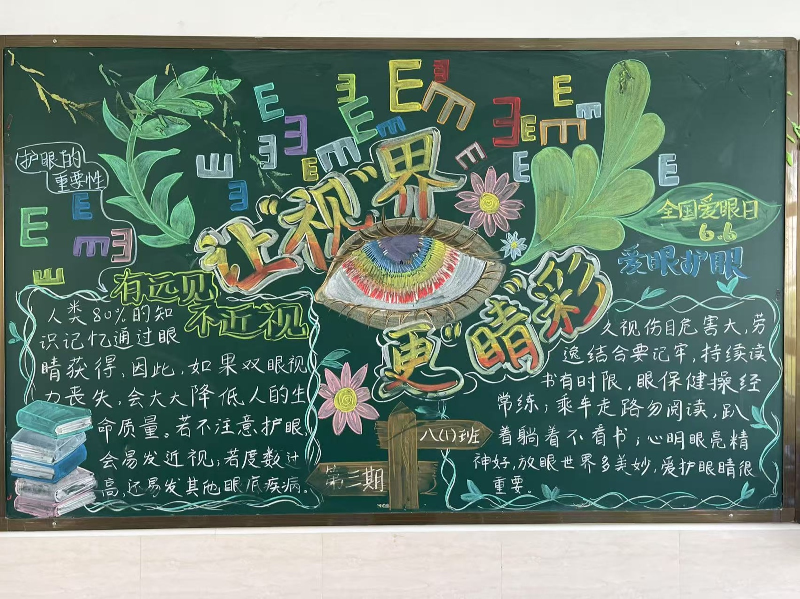 护眼的
重要性
E E E E E E E E E E E E
让"视"界
更"睛"彩
全国爱眼日
6.6
爱眼护眼
有远见
不近视
人类80%的知
识记忆通过眼
睛获得，因此，如果双眼视
力丧失，会大大降低人的生
命质量。若不注意护眼，
会易发近视；若度数过
高，还易发其他眼底疾病。
八(1)班
第三期
久视伤目危害大，劳
逸结合要记牢，持续读
书有时限，眼保健操经
常练；乘车走路勿阅读，趴
着躺着不看书；心明眼亮精
神好，放眼世界多美妙，爱护眼睛很
重要。